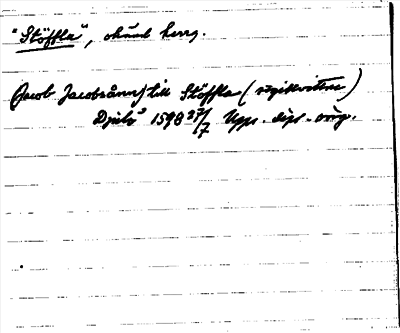 "Stöffla", okänd herrg.
(Jacob Jacobsånn) till Stöffla (sigillvittne)
Djulö 1598 27/7 Upps. dipl. orig.